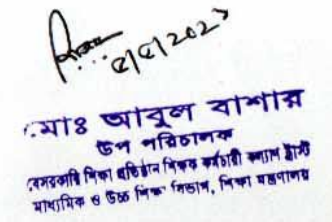 ৫/৫/2023
মোঃ আবুল বাশার
উপ পরিচালক
বেসরকারি শিক্ষা প্রতিষ্ঠান শিক্ষক কর্মচারী কল্যাণ ট্রাস্ট
মাধ্যমিক ও উচ্চ শিক্ষা বিভাগ, শিক্ষা মন্ত্রণালয়